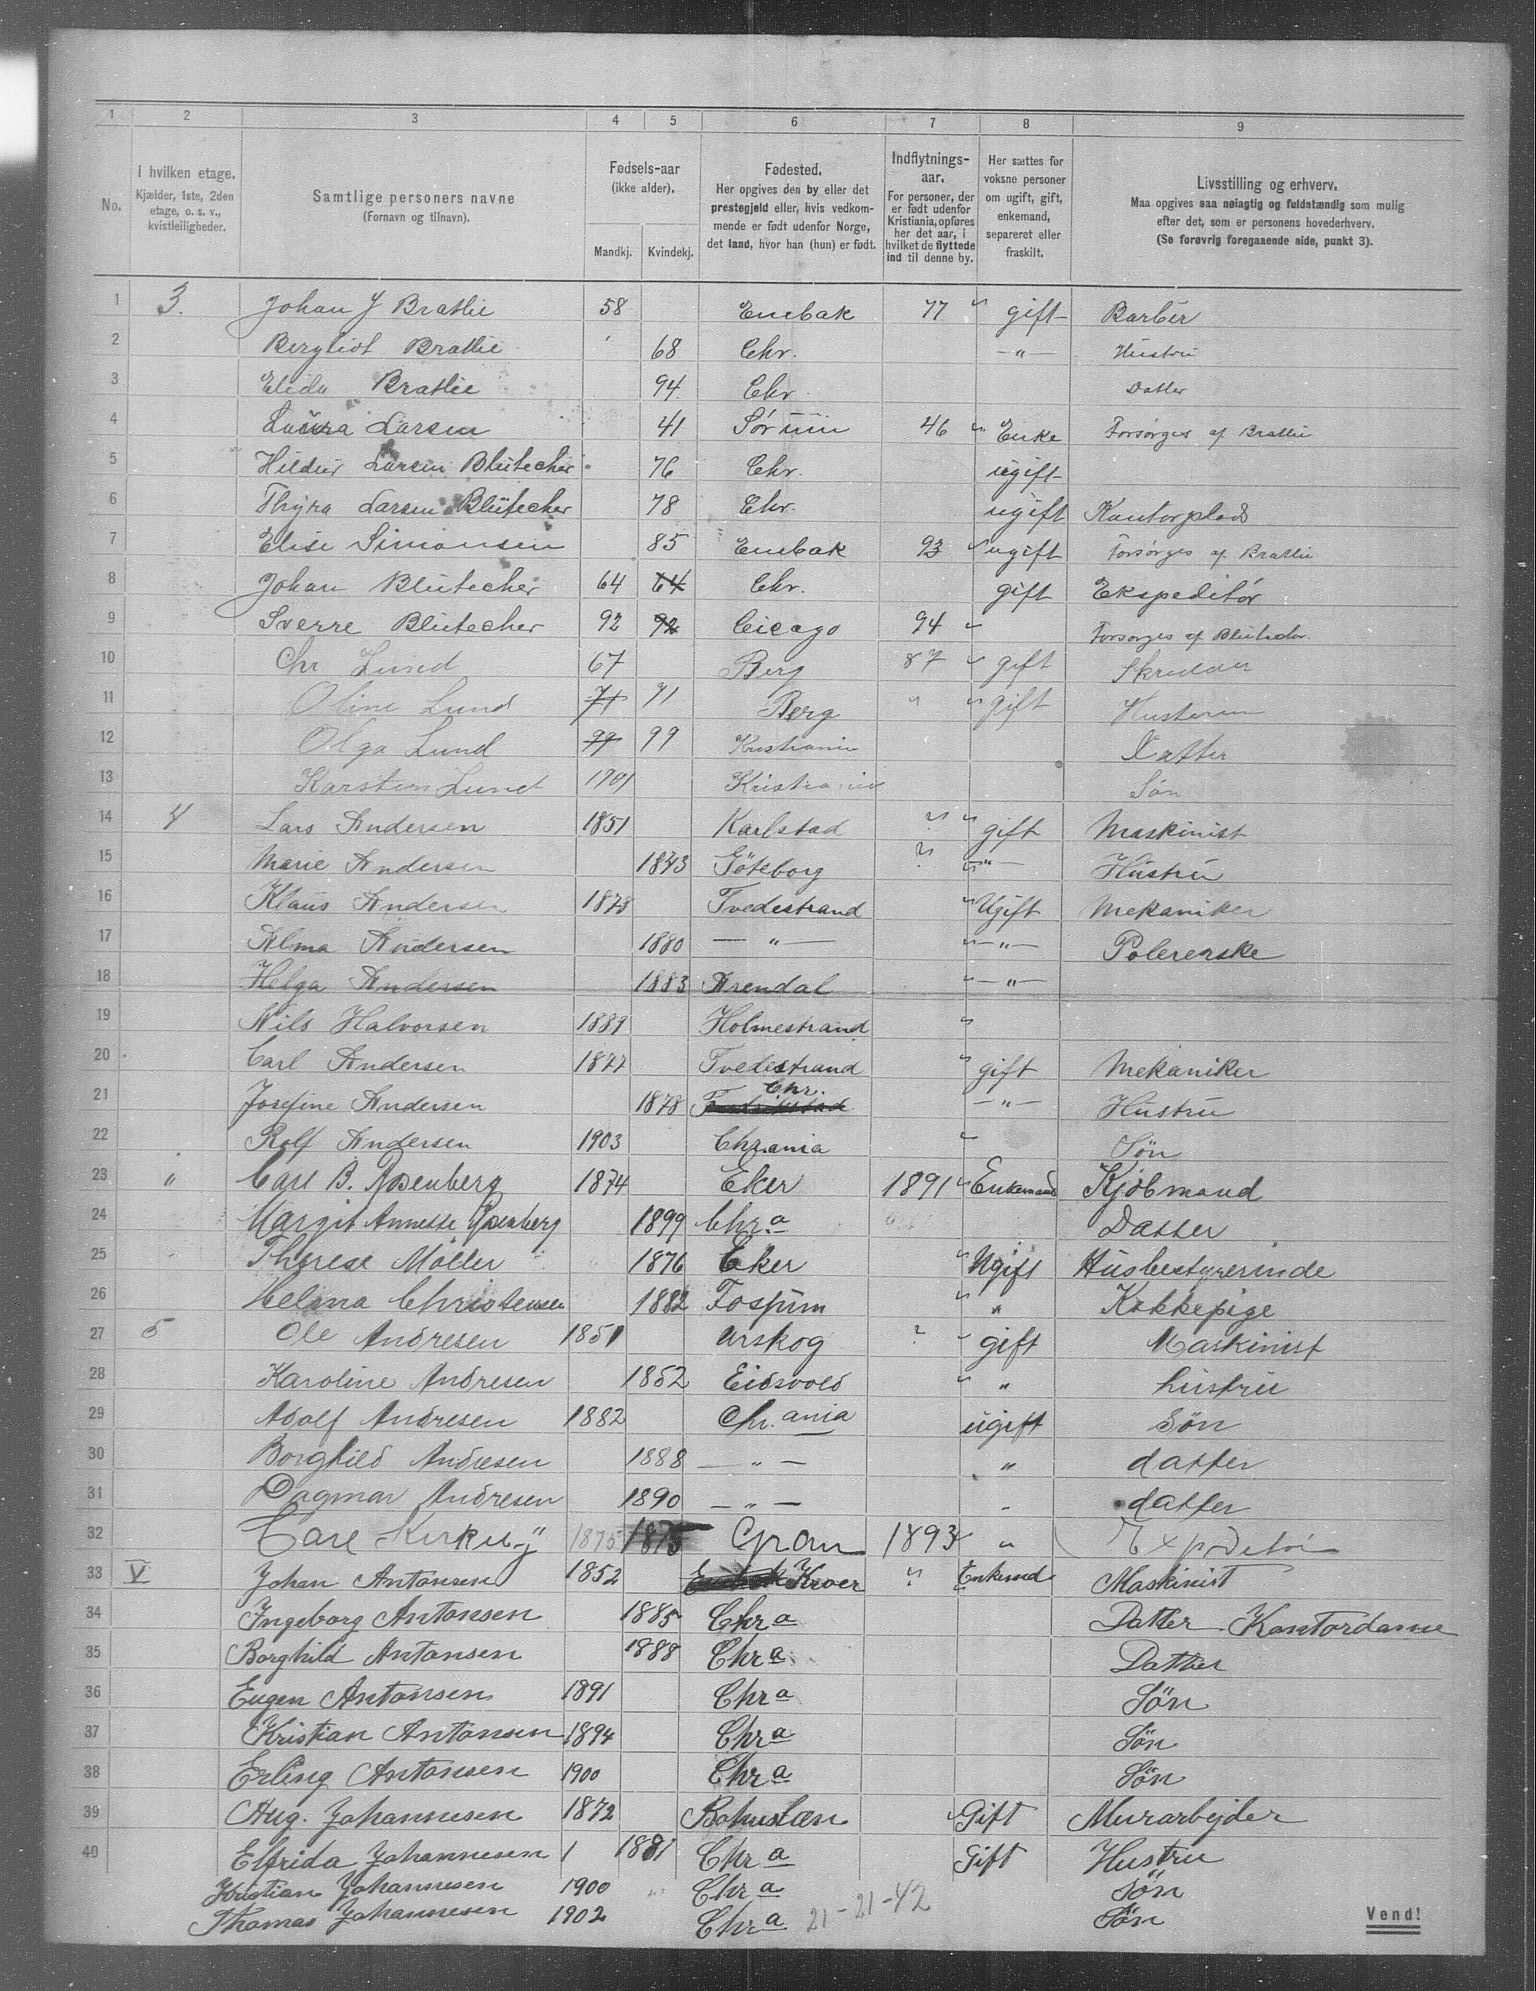 1 2 3 4 5 6 7 8 9
No. I hvilken etage. Kjælder, 1ste, 2den etage, o. s. v., kvistleiligheder. Samtlige personers navne (Fornavn og tilnavn). Fødsels-aar (ikke alder). Mandkj. Kvindekj. Fødested. Her opgives den by eller det prestegjeld eller, hvis vedkommende er født udenfor Norge, det land, hvor han (hun) er født. Indflytnings-aar. For personer, der er født udenfor Kristiania, opføres her det aar, i hvilket de flyttede ind til denne by. Her sættes for voksne personer om ugift, gift, enkemand, separeret eller fraskilt. Livsstilling og erhverv. Maa opgives saa nøiagtig og fuldstændig som mulig efter det, som er personens hovederhverv. (Se forøvrig foregaaende side, punkt 3).
1 3. Johan J Bratlie 58 Enebak 77 gift Barbér
2 Bergliot Bratlie 68 Chr. —"— Hustru
3 Elida Bratlie 94 Chr. Datter
4 Laura Larsen 41 Sørum 46 Enke Forsørges af Bratlie
5 Hildur Larsen Blütecher 76 Chr. ugift
6 Thyra Larsen Blütecher 78 Chr. ugift Kantorplads
7 Elise Simonsen 85 Enebak 93 ugift Forsørges af Bratlie
8 Johan Blütecher 64 64 Chr. gift Ekspeditør
9 Sverre Blütecher 92 92 Cicago 94 Forsørges af Blütecher.
10 Chr Lund 67 Berg 87 gift Skredder
11 Oline Lund 71 71 Berg " gift Husteru
12 Olga Lund 99 99 Kristiania Datter
13 Karsten Lund 1901 Kristiania Søn
14 4 Lars Andersen 1851 Karlstad ? gift Maskinist
15 Marie Andersen 1843 Göteborg ? —"— Hustru
16 Klaus Andersen 1878 Tvedestrand Ugift Mekaniker
17 Alma Andersen 1880 —"— —"— Polererske
18 Helga Andersen 1883 Arendal —"—
19 Nils Halvorsen 1889 Holmestrand
20 Carl Andersen 1877 Tvedestrand gift Mekaniker
21 Josefine Andersen 1878 Fredrikstad Chr. —"— Hustru
22 Rolf Andersen 1903 Chr.ania Søn
23 " Carl B. Rosenberg 1874 Eker 1891 Enkemand Kjøbmand
24 Margit Annette Rosenberg 1899 Chr.a Datter
25 Therese Møller 1876 Eker Ugift Husbestyrerinde
26 Helena Christensen 1882 Fossum " Kokkepige
27 5 Ole Andresen 1851 Urskog ? gift Maskinist
28 Karoline Andresen 1852 Eidsvold " hustru
29 Adolf Andresen 1882 Chr.ania ugift Søn
30 Borghild Andresen 1888 —"— " datter
31 Dagmar Andresen 1890 —"— " datter
32 Carl Kirkeby 1875 1875 Gran 1893 " Expeditør
33 V Johan Antonsen 1852 Kroer ? Enkemd Maskinist
34 Ingeborg Antonsen 1885 Chra Datter Kontordame
35 Borghild Antonsen 1888 Chra Datter
36 Eugen Antonsen 1891 Chra Søn
37 Kristian Antonsen 1894 Chra Søn
38 Erling Antonsen 1900 Chra Søn
39 Aug. Johannesen 1872 Bohuslæn Gift Murarbejder
40 Elfrida Johannesen 1 1881 Chra Gift Hustru
Kristian Johannesen 1900 Chra Søn
Thomas Johannesen 1902 Chra 21-21-42 Søn
Vend!